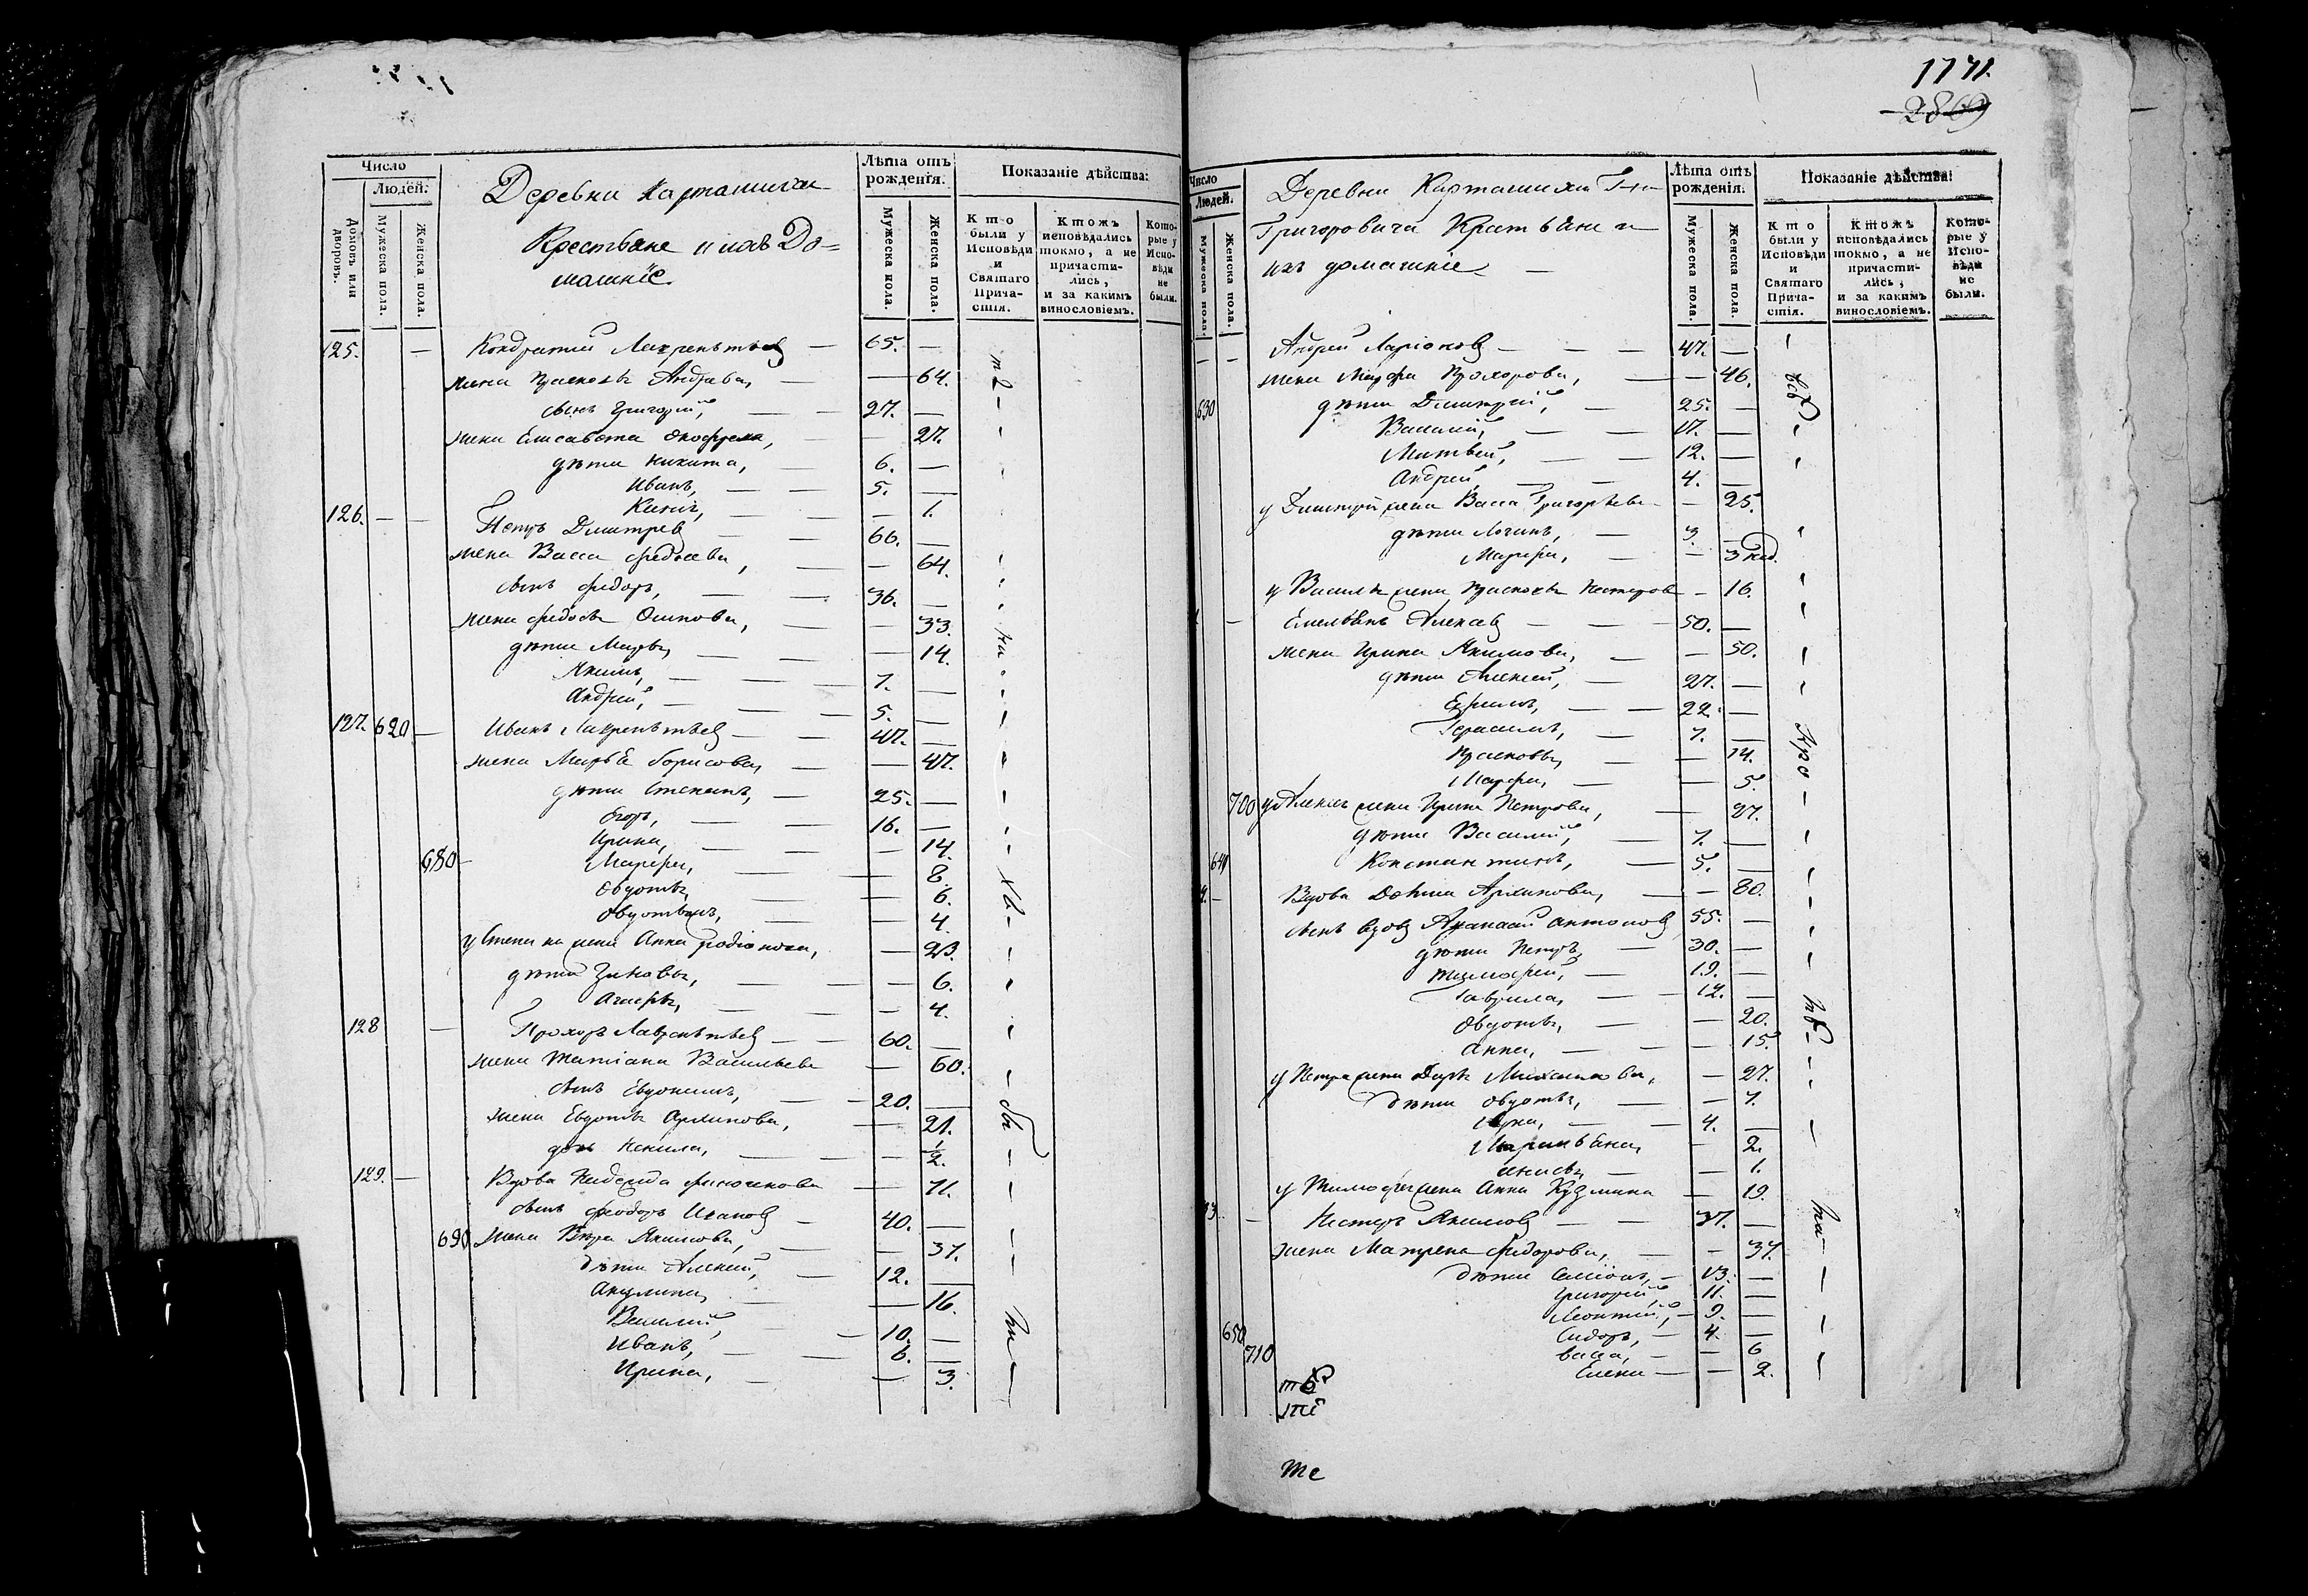 1171.
2869
Число
Людей.
Домовъ или дворовъ.
Мужеска пола.
Женска пола.
Деревни Карташихи
Крестьѣне и ихъ До=
машніе
Лѣта отъ рожденія.
Мужеска пола.
Женска пола.
Показаніе дѣйства:
Кто были у Исповѣди и Святаго Причастія.
Ктожъ исповѣдались токмо, а не причастились, и за какимъ винословіемъ.
Которые у Исповѣди не были.
125. — Кондратій Лаврентьев — 65. —
жена Прасковья Андреева, — 64.
сынъ Григорій, — 27. —
жена Елисавета — 27.
дѣти Никита, 6. —
Иванъ, — 5. —
— 1.
126. — — Петръ Дмитрев 66. —
жена Васса — 64.
сынъ Федоръ, — 36. —
жена Федосья Осипова, — 33.
дѣти Марья, — 14.
Якимъ, — 7. —
Андрей, — 5. —
127. 620 — Иванъ Лаврентьев — 47. —
жена Марья Борисова, — 47.
дѣти Степанъ, — 25. —
Егоръ, — 16. —
Ирина, — 14.
680 — Марфа, — 8
Овдотья, — 6.
— 4.
у Степана жена Анна Родіонова, — 23.
дѣти Зиновья, — 6.
— 4.
128 — Прохоръ Лаврентьев — 60. —
жена Татіана Васильева — 60.
сынъ Евдокимъ, — 20. —
жена Евдотья Архипова, — 21.
дочь — 1/2.
129. — Вдова Надежда — 71.
сынъ Феодоръ Иванов — 40. —
690 жена Вѣра Якимова, — 37.
дѣти Алексей, — 12. —
Акулина, — 16.
Василій, — 10. —
Иванъ, — 6. —
Ирина, — 3.
Число
Людей.
Мужеска пола.
Женска пола.
Деревни Карташихи Г-на
Григоровича Крестьѣне и
ихъ домашніе —
Лѣта отъ рожденія.
Мужеска пола.
Женска пола.
Показаніе дѣйства:
Кто были у Исповѣди и Святаго Причастія.
Ктожъ исповѣдались токмо, а не причастились, и за какимъ винословіемъ.
Которые у Исповѣди не были.
— — Андрей Ларіонов — 47. —
жена Марфа Прохорова, — 46.
630 дѣти Дмитрій, — 25. —
Василій, — 17. —
Матвѣй, — 12. —
Андрей, — 4. —
у Дмитрія жена Васса Григорьева — 25.
дѣти Логинъ, — 3. —
Марфа, — 3 нед.
у Василья жена Прасковья Нестерова — 16.
— Емельянъ Алексев — 50. —
жена Ирина Якимова, — 50.
дѣти Алексей, — 27. —
Ефимъ, — 22. —
Герасимъ, — 7. —
Прасковья, — 14.
Марфа, — 5.
700 у Алексея жена Ирина Петрова, — 27.
дѣти Василій, — 7. —
640 Константинъ, — 5. —
Вдова Архипова, — 80.
сынъ вдов Афанасій Антонов 55. —
дѣти Петръ, — 30. —
Тимофей, — 19. —
Гаврила, — 12. —
Овдотья, — 20.
Анна, — 15.
у Петра жена Дарья Михайлова, — 27.
дѣти Овдотья, — 7.
Лука, — 4. —
Маремьѣна, — 2.
Анисья — 1.
у Тимофея жена Анна Кузмина — 19.
— Нестеръ Якимов — 37. —
жена Матрена Федорова, — 37.
дѣти Симіонъ, — 13. —
Григорій, 11. —
Леонтій, — 9. —
650 Сидоръ, — 4. —
710 Васса, — 6
Елена — 2.
те